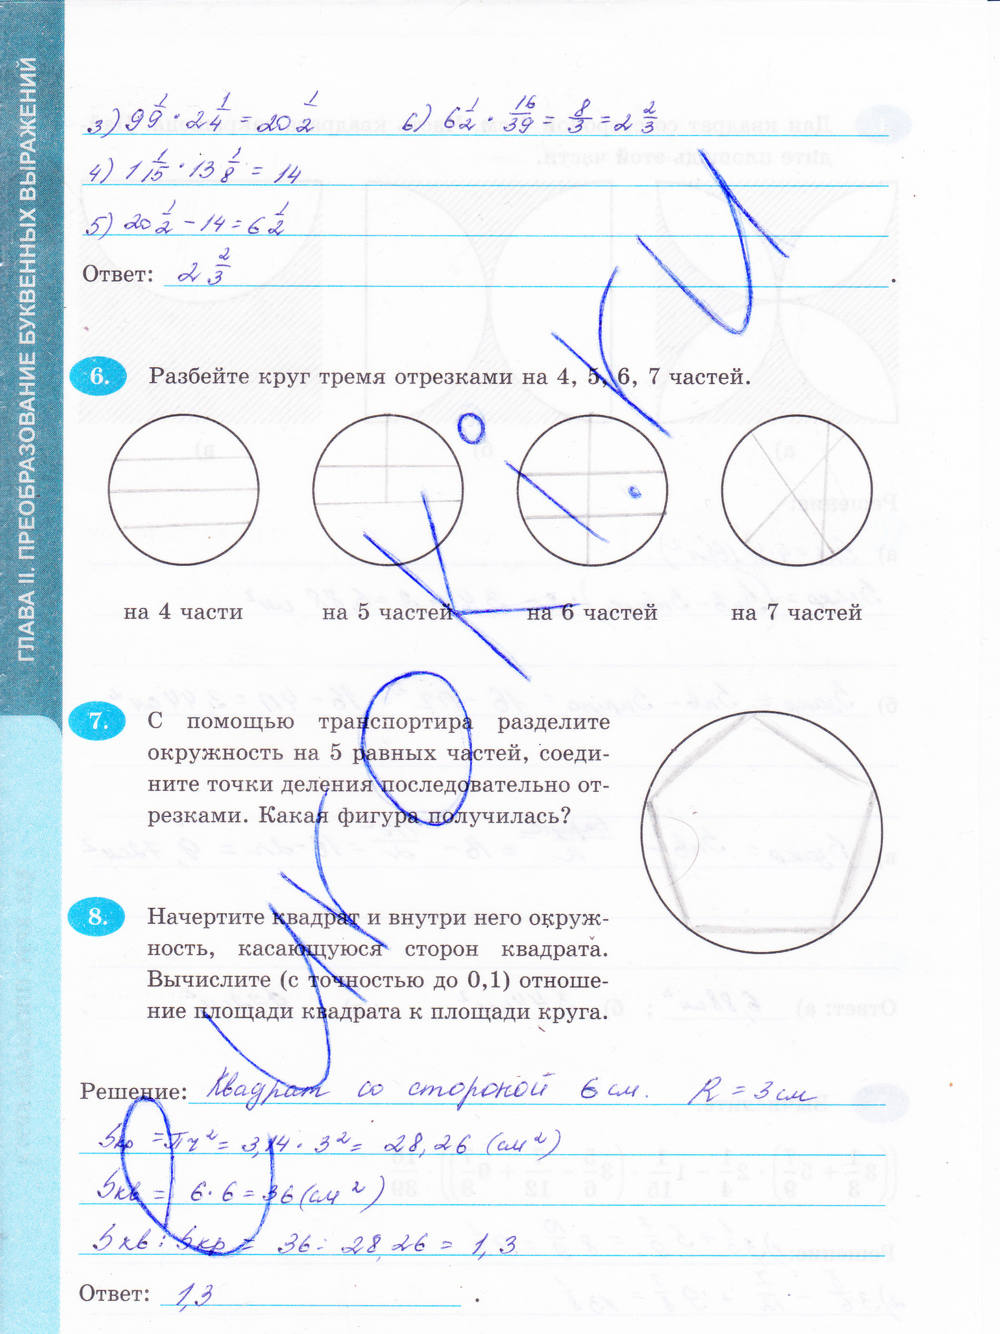 ГЛАВА II. ПРЕОБРАЗОВАНИЕ БУКВЕННЫХ ВЫРАЖЕНИЙ
3) 9 1/9 · 2 1/4 = 20 1/2
6) 6 1/2 · 16/39 = 8/3 = 2 2/3
4) 1 1/15 · 13 1/8 = 14
5) 20 1/2 − 14 = 6 1/2
Ответ: 2 2/3 .
6. Разбейте круг тремя отрезками на 4, 5, 6, 7 частей.
на 4 части
на 5 частей
на 6 частей
на 7 частей
7. С помощью транспортира разделите
окружность на 5 равных частей, соеди-
ните точки деления последовательно от-
резками. Какая фигура получилась?
8. Начертите квадрат и внутри него окруж-
ность, касающуюся сторон квадрата.
Вычислите (с точностью до 0,1) отноше-
ние площади квадрата к площади круга.
Решение: Квадрат со стороной 6 см. R = 3 см
Sкр = πr² = 3,14 · 3² = 28,26 (см²)
Sкв = 6 · 6 = 36 (см²)
Sкв : Sкр = 36 : 28,26 = 1,3
Ответ: 1,3 .